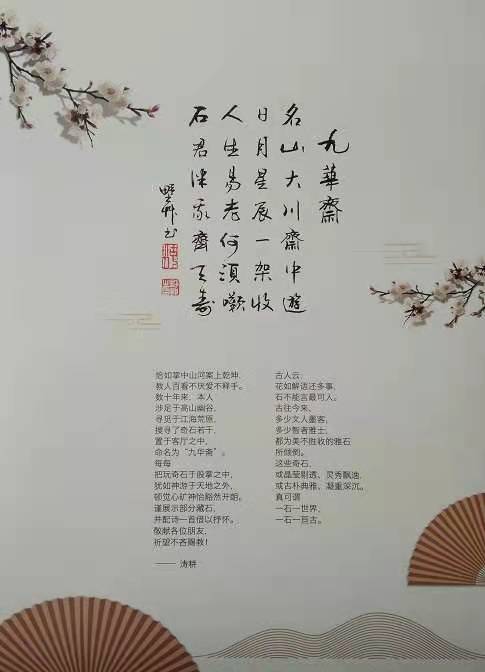 九華齋
名山大川齋中遊
日月星辰一架收
人生易老何須嘆
石君伴我齊天壽
野艸书
古人云,
花如解语还多事,
石不能言最可人。
古往今来,
多少文人墨客,
多少智者雅士,
都为美不胜收的雅石
所倾倒。
这些奇石,
或晶莹剔透、灵秀飘逸,
或古朴典雅、凝重深沉。
真可谓
一石一世界,
一石一亘古。
恰如掌中山河案上乾坤,
教人百看不厌爱不释手。
数十年来, 本人
涉足于高山幽谷,
寻觅于江海荒原,
搜寻了奇石若干,
置于客厅之中,
命名为“九华斋”。
每每
把玩奇石于股掌之中,
犹如神游于天地之外,
顿觉心旷神怡豁然开朗。
谨展示部分藏石,
并配诗一首借以抒怀。
敬献各位朋友,
祈望不吝赐教!
—— 涛耕